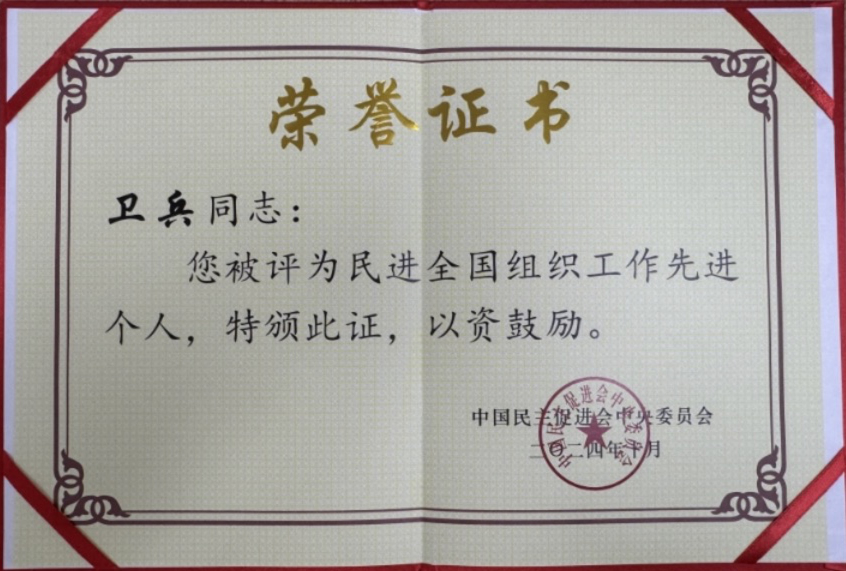 荣誉证书
卫兵同志：
您被评为民进全国组织工作先进
个人，特颁此证，以资鼓励。
中国民主促进会中央委员会
二〇二四年十月
中国民主促进会中央委员会